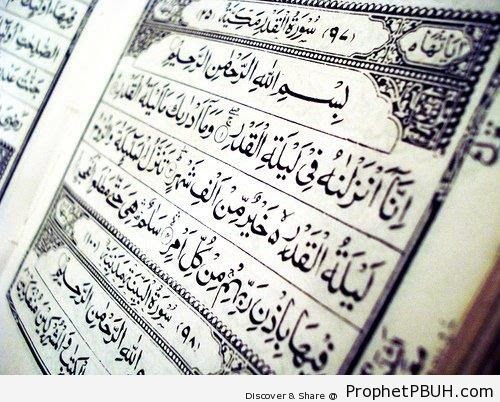 (٩٧) سُوْرَةُ الْقَدْرِ مَكِّيَّةٌ (٢٥)
بِسْمِ اللهِ الرَّحْمٰنِ الرَّحِيْمِ
اِنَّاۤ اَنْزَلْنٰهُ فِیْ لَيْلَةِ الْقَدْرِ وَمَاۤ اَدْرٰىكَ مَا لَيْلَةُ الْقَدْرِ
لَيْلَةُ الْقَدْرِ خَيْرٌ مِّنْ اَلْفِ شَهْرٍ تَنَزَّلُ الْمَلٰٓئِكَةُ وَالرُّوْحُ
فِيْهَا بِاِذْنِ رَبِّهِمْ مِّنْ كُلِّ اَمْرٍ سَلٰمٌ هِیَ حَتّٰى مَطْلَعِ الْفَجْرِ
(٩٨) سُوْرَةُ الْبَيِّنَةِ مَدَنِيَّةٌ (١٠٠)
اللهِ الرَّحْمٰنِ الرَّحِيْمِ
Discover & Share @ ProphetPBUH.com